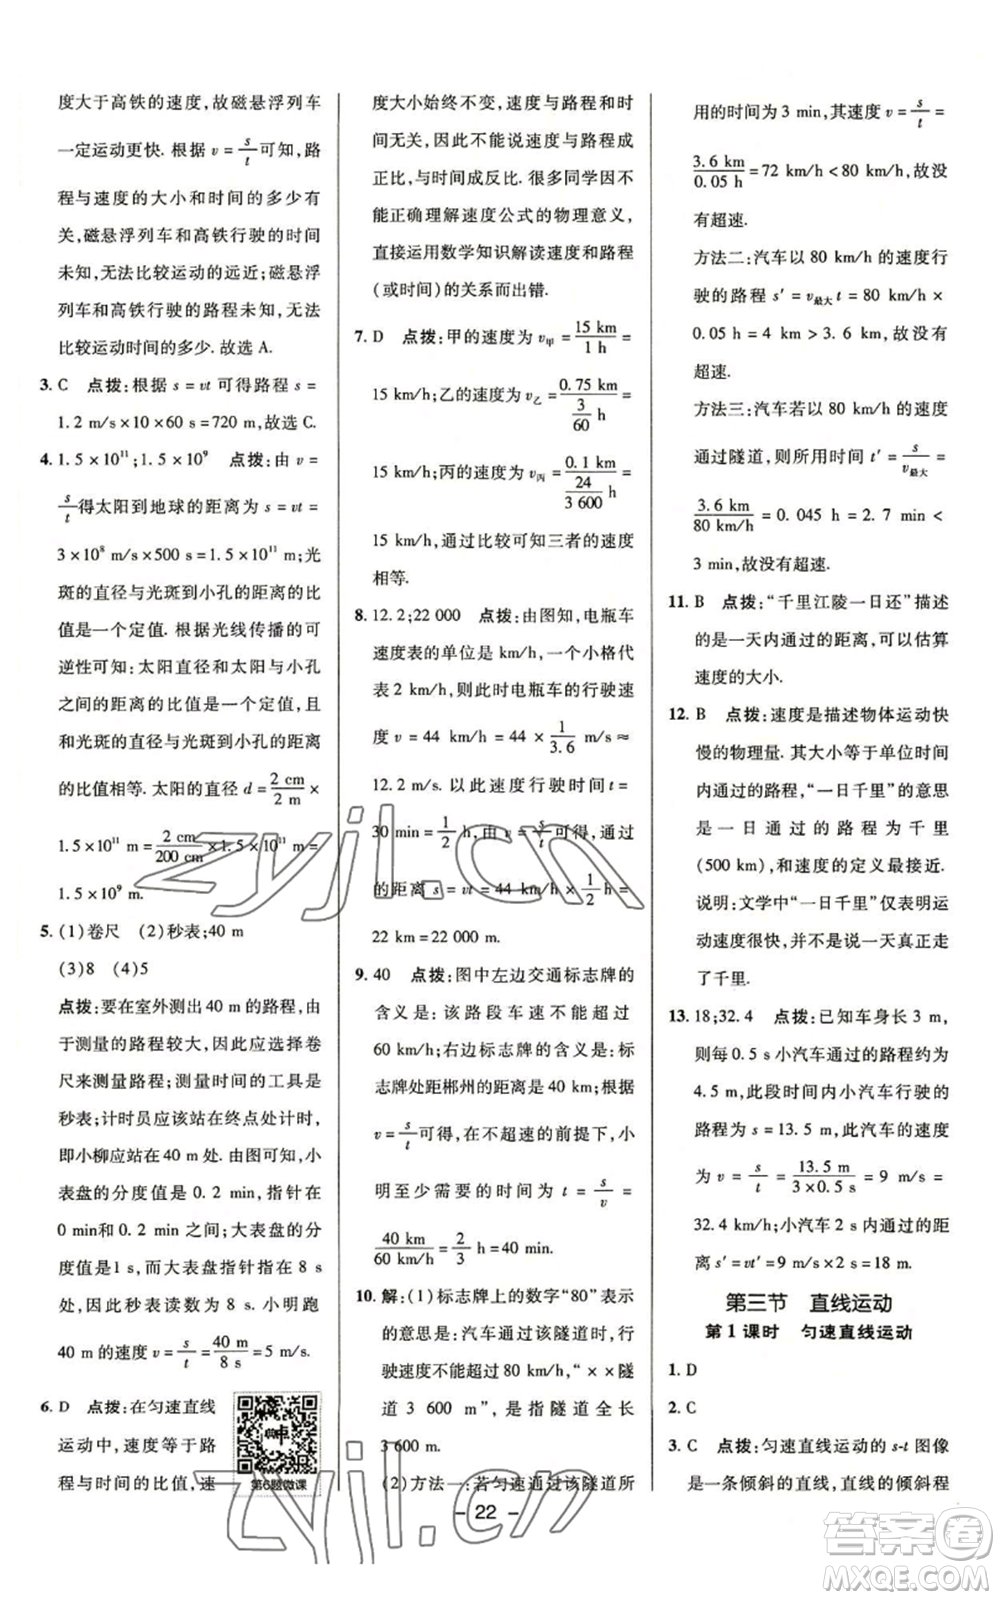 度大于高铁的速度,故磁悬浮列车
一定运动更快. 根据 v = s/t 可知,路
程与速度的大小和时间的多少有
关,磁悬浮列车和高铁行驶的时间
未知,无法比较运动的远近;磁悬浮
列车和高铁行驶的路程未知,无法
比较运动时间的多少. 故选 A.
3. C 点拨:根据 s = vt 可得路程 s =
1. 2 m/s × 10 × 60 s = 720 m,故选 C.
4. 1. 5 × 10¹¹;1. 5 × 10⁹ 点拨:由 v =
s/t 得太阳到地球的距离为 s = vt =
3 × 10⁸ m/s × 500 s = 1. 5 × 10¹¹ m;光
斑的直径与光斑到小孔的距离的比
值是一个定值. 根据光线传播的可
逆性可知:太阳直径和太阳与小孔
之间的距离的比值是一个定值,且
和光斑的直径与光斑到小孔的距离
的比值相等. 太阳的直径 d = 2 cm/2 m ×
1. 5 × 10¹¹ m = 2 cm/200 cm × 1. 5 × 10¹¹ m =
1. 5 × 10⁹ m.
5. (1)卷尺 (2)秒表;40 m
(3)8 (4)5
点拨:要在室外测出 40 m 的路程,由
于测量的路程较大,因此应选择卷
尺来测量路程;测量时间的工具是
秒表;计时员应该站在终点处计时,
即小柳应站在 40 m 处. 由图可知,小
表盘的分度值是 0. 2 min,指针在
0 min和0. 2 min 之间;大表盘的分
度值是1 s,而大表盘指针指在 8 s
处,所以秒表读数为 8 s. 小明跑
40 m 的速度 v = s/t = 40 m/8 s = 5 m/s.
6. D 点拨:在匀速直线
运动中,速度等于路
程与时间的比值,速
第6题微课
度大小始终不变,速度与路程和时
间无关,因此不能说速度与路程成
正比,与时间成反比. 很多同学因不
能正确理解速度公式的物理意义,
直接运用数学知识解读速度和路程
(或时间)的关系而出错.
7. D 点拨:甲的速度为 v甲 = 15 km/1 h =
15 km/h;乙的速度为 v乙 = 0. 75 km/(3/60 h) =
15 km/h;丙的速度为 v丙 = 0. 1 km/(24/3 600 h) =
15 km/h,通过比较可知三者的速度
相等.
8. 12. 2;22 000 点拨:由图知,电瓶车
速度表的单位是 km/h,一个小格代
表 2 km/h,则此时电瓶车的行驶速
度 v = 44 km/h = 44 × 1/3. 6 m/s ≈
12. 2 m/s. 以此速度行驶时间 t =
30 min = 1/2 h,由 v = s/t 可得,通过
的距离 s = vt = 44 km/h × 1/2 h =
22 km = 22 000 m.
9. 40 点拨:图中左边交通标志牌的
含义是:该路段车速不能超过
60 km/h;右边标志牌的含义是:标
志牌处距郴州的距离是 40 km;根据
v = s/t 可得,在不超速的前提下,小
明至少需要的时间为 t = s/v =
40 km/60 km/h = 2/3 h = 40 min.
10. 解:(1)标志牌上的数字“80”表示
的含义是:汽车通过该隧道时的行
驶速度不能超过 80 km/h,“× ×隧
道 3 600 m”,是指隧道全长
3 600 m.
(2)方法一:若匀速通过该隧道所
用的时间为 3 min,其速度 v = s/t =
3. 6 km/0. 05 h = 72 km/h < 80 km/h,故没
有超速.
方法二:汽车以 80 km/h 的速度行
驶的路程 s′ = v最大 t = 80 km/h ×
0. 05 h = 4 km > 3. 6 km,故没有
超速.
方法三:汽车若以 80 km/h 的速度
通过隧道,则所用时间 t′ = s/v最大 =
3. 6 km/80 km/h = 0. 045 h = 2. 7 min <
3 min,故没有超速.
11. B 点拨:“千里江陵一日还”描述
的是一天内通过的距离,可以估算
速度的大小.
12. B 点拨:速度是描述物体运动快
慢的物理量. 其大小等于单位时间
内通过的路程,“一日千里”的意思
是一日通过的路程为千里
(500 km),与速度的定义最接近.
说明:文学中“一日千里”仅表明运
动速度很快,并不是说一天真正走
了千里.
13. 18;32. 4 点拨:已知车身长 3 m,
则每 0. 5 s 小汽车通过的路程约为
4. 5 m,此段时间内小汽车行驶的
路程为 s = 13. 5 m,此汽车的速度
为 v = s/t = 13. 5 m/3 × 0. 5 s = 9 m/s =
32. 4 km/h;小汽车 2 s 内通过的距
离 s′ = vt′ = 9 m/s × 2 s = 18 m.
第三节 直线运动
第 1 课时 匀速直线运动
1. D
2. C
3. C 点拨:匀速直线运动的 s-t 图像
是一条倾斜的直线,直线的倾斜程
- 22 -
zyjl.cn
zyjl.cn
答案卷
MXQE.COM